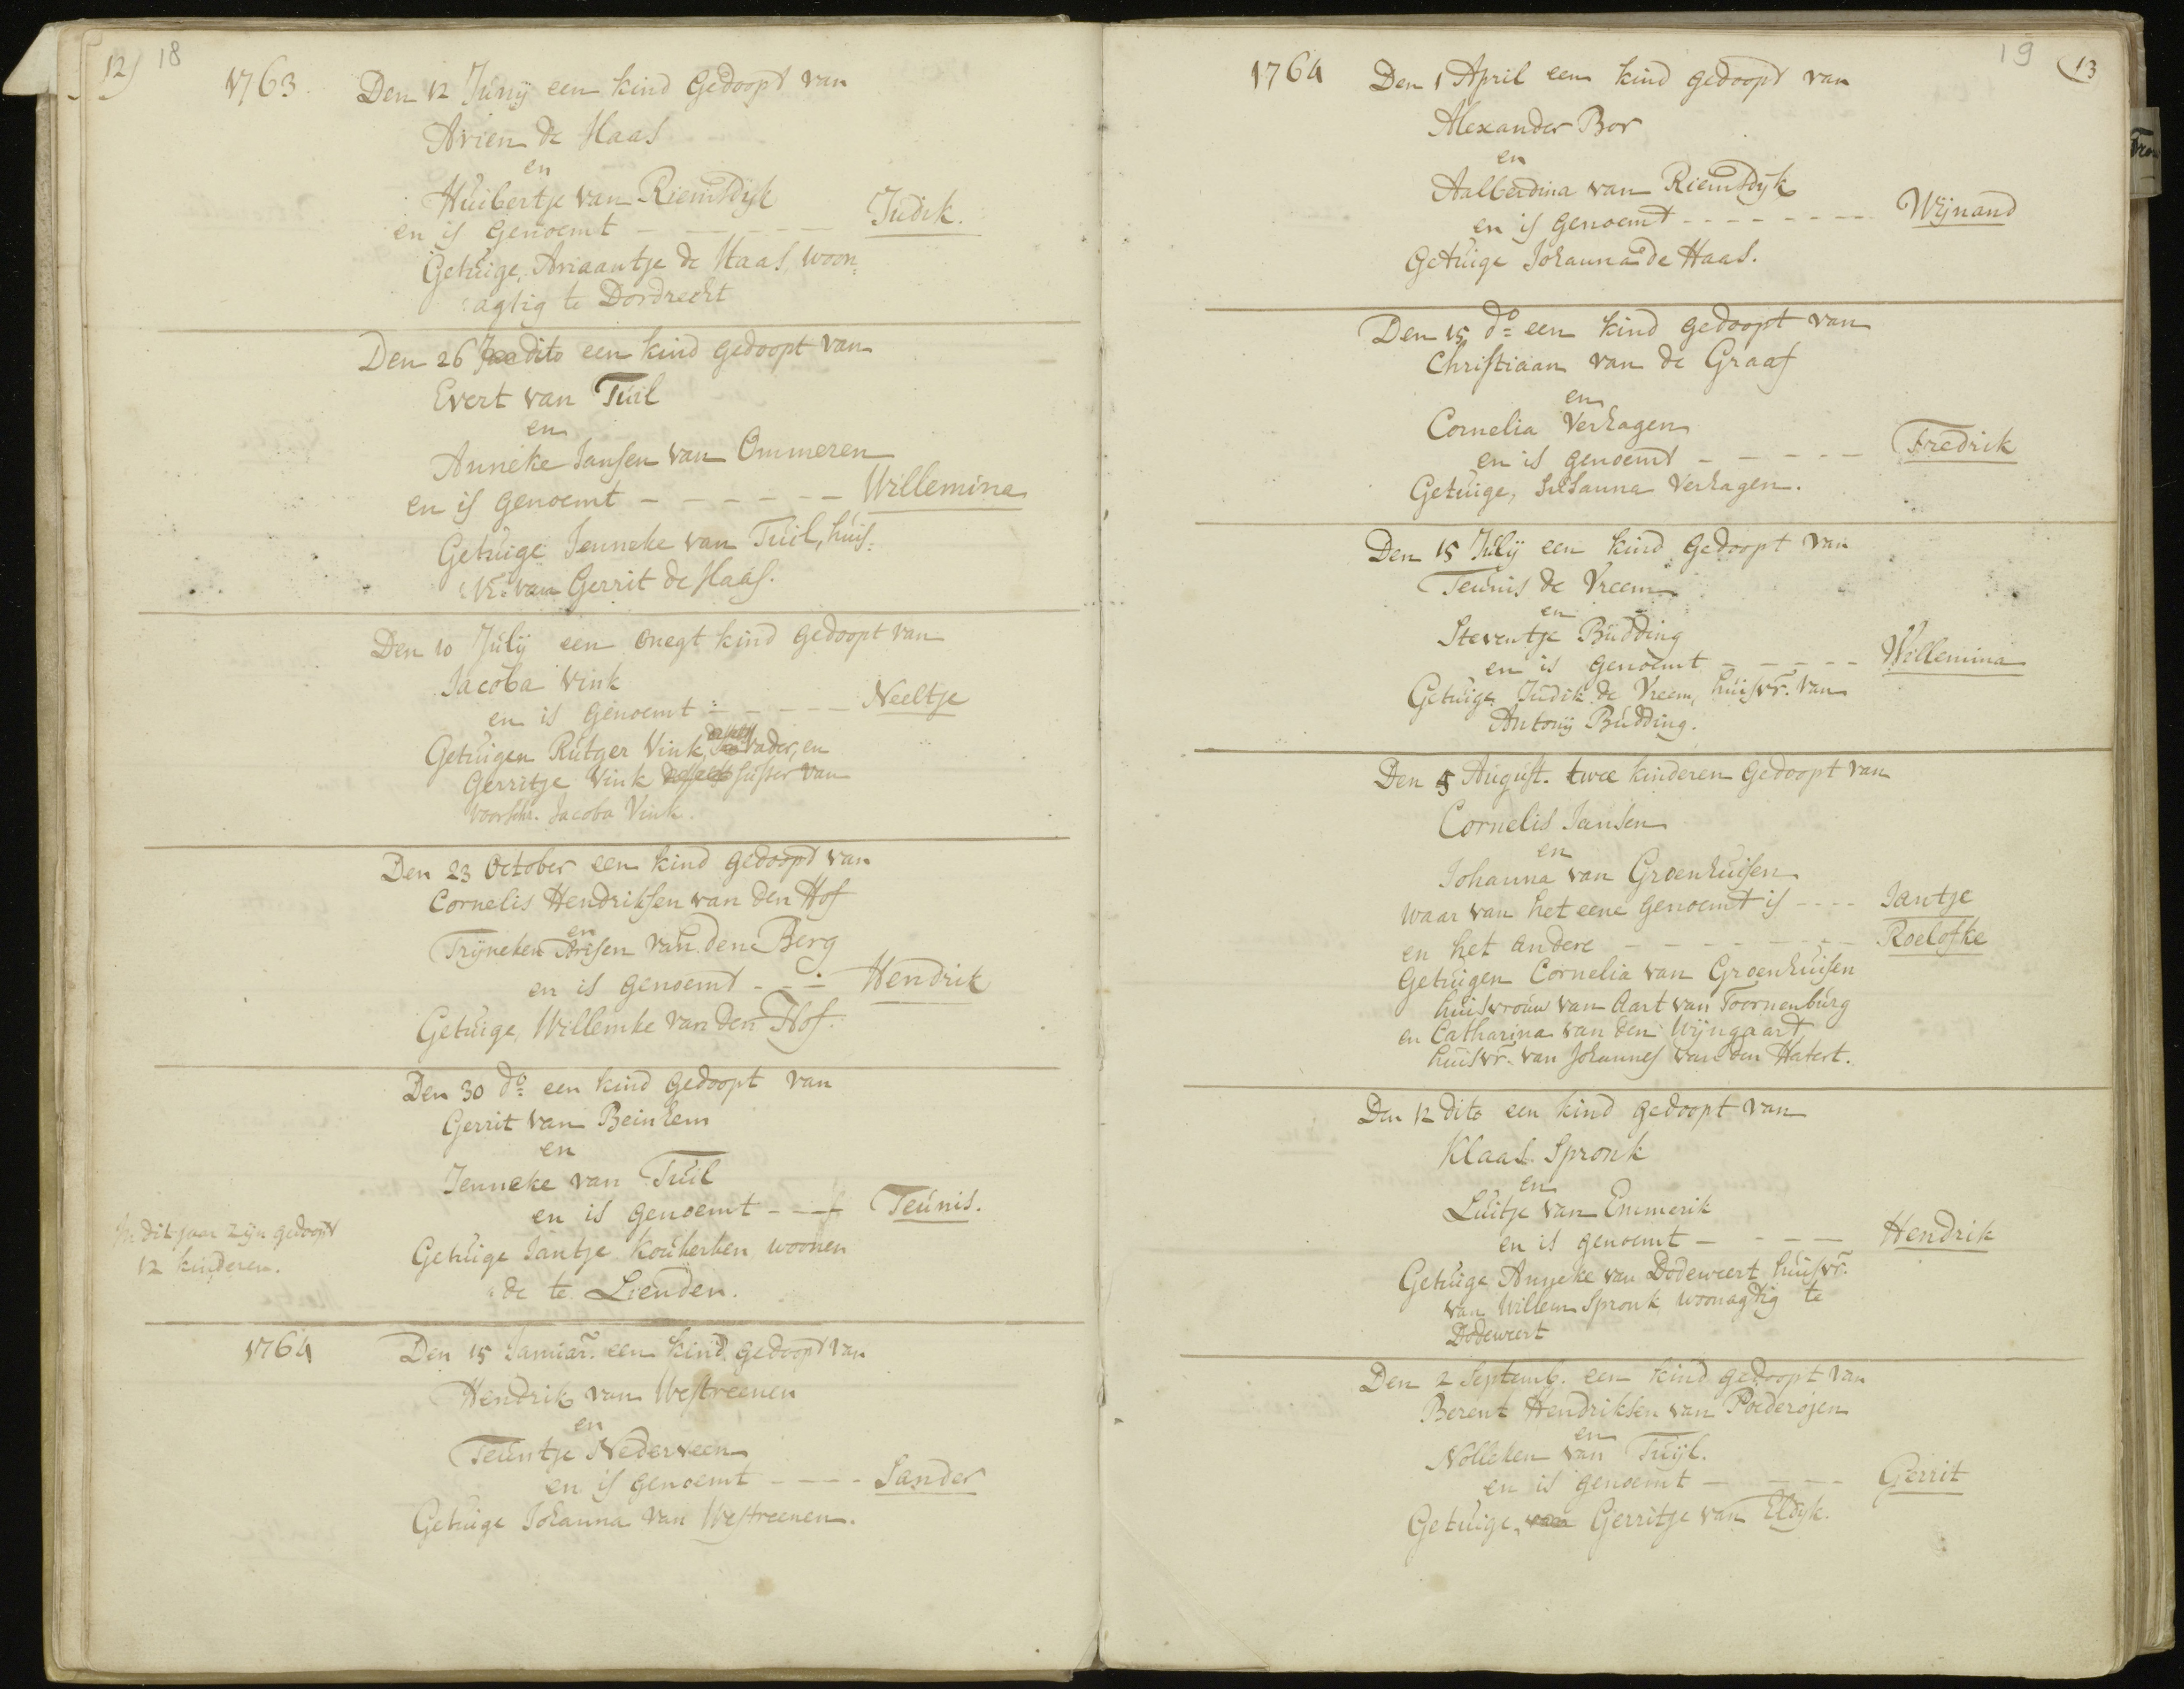 12) 18
1763. Den 12 Junij een kind gedoopt van
Arien de Haas
en
Huibertje van Riemsdijk
en is genoemt - - - - - Judik.
Getuige, Ariaantje de Haas, woon=
:agtig te Dordrecht
Den 26 dito een kind gedoopt van
Evert van Tuil
en
Anneke Jansen van Ommeren
en is genoemt - - - - - - Willemina
Getuige Jenneke van Tuil, huis=
:vr. van Gerrit de Haas.
Den 10 Julij een onegt kind gedoopt van
Jacoba Vink
en is genoemt - - - - - Neeltje
Getuigen Rutger Vink, vader, en
Gerritje Vink suster van
voorschr. Jacoba Vink.
Den 23 October een kind gedoopt van
Cornelis Hendriksen van den Hof
en
Trijneken van den Berg
en is genoemt - - - Hendrik
Getuige, Willemke van den Hof.
Den 30 do. een kind gedoopt van
Gerrit van Beinhem
en
Jenneke van Tuil
en is genoemt - - - Teunis.
In dit jaar zijn gedoopt
12 kinderen.
Getuige Jantje Kouherken woonen
:de te Lienden.
1764 Den 15 Januar. een kind gedoopt van
Hendrik van Westreenen
en
Teuntje Nederveen
en is genoemt - - - - Sander
Getuige Johanna van Westreenen.
19 13
1764 Den 1 April een kind gedoopt van
Alexander Bor
en
Aalberdina van Riemsdijk
en is genoemt - - - - - - - Wijnand
Getuige Johanna de Haas.
Den 15 do. een kind gedoopt van
Christiaan van de Graaf
en
Cornelia Verhagen
en is genoemt - - - - - Fredrik
Getuige, Susanna Verhagen.
Den 15 Julij een kind gedoopt van
Teunis de Vreem
en
Steventje Budding
en is genoemt - - - - - Willemina
Getuige Judik de Vreem, huisvr. van
Antonij Budding.
Den 5 August. twee kinderen gedoopt van
Cornelis Jansen
en
Johanna van Groenhuisen
waar van het eene genoemt is - - - - Jantje
en het andere - - - - - - - - Roelofke
Getuigen Cornelia van Groenhuisen
huisvrouw van Aart van Toornenburg
en Catharina van den Wijngaard
huisvr. van Johannes van den Hatert.
Den 12 dito een kind gedoopt van
Klaas Spronk
en
Luitje van Emmerik
en is genoemt - - - - - Hendrik
Getuige Anneke van Dodeweert huisvr.
van Willem Spronk woonagtig te
Dodeweert
Den 2 Septemb. een kind gedoopt van
Berent Hendriksen van Poederojen
en
Nolleken van Tuijl.
en is genoemt - - - - - Gerrit
Getuige, Gerritje van Eldijk.